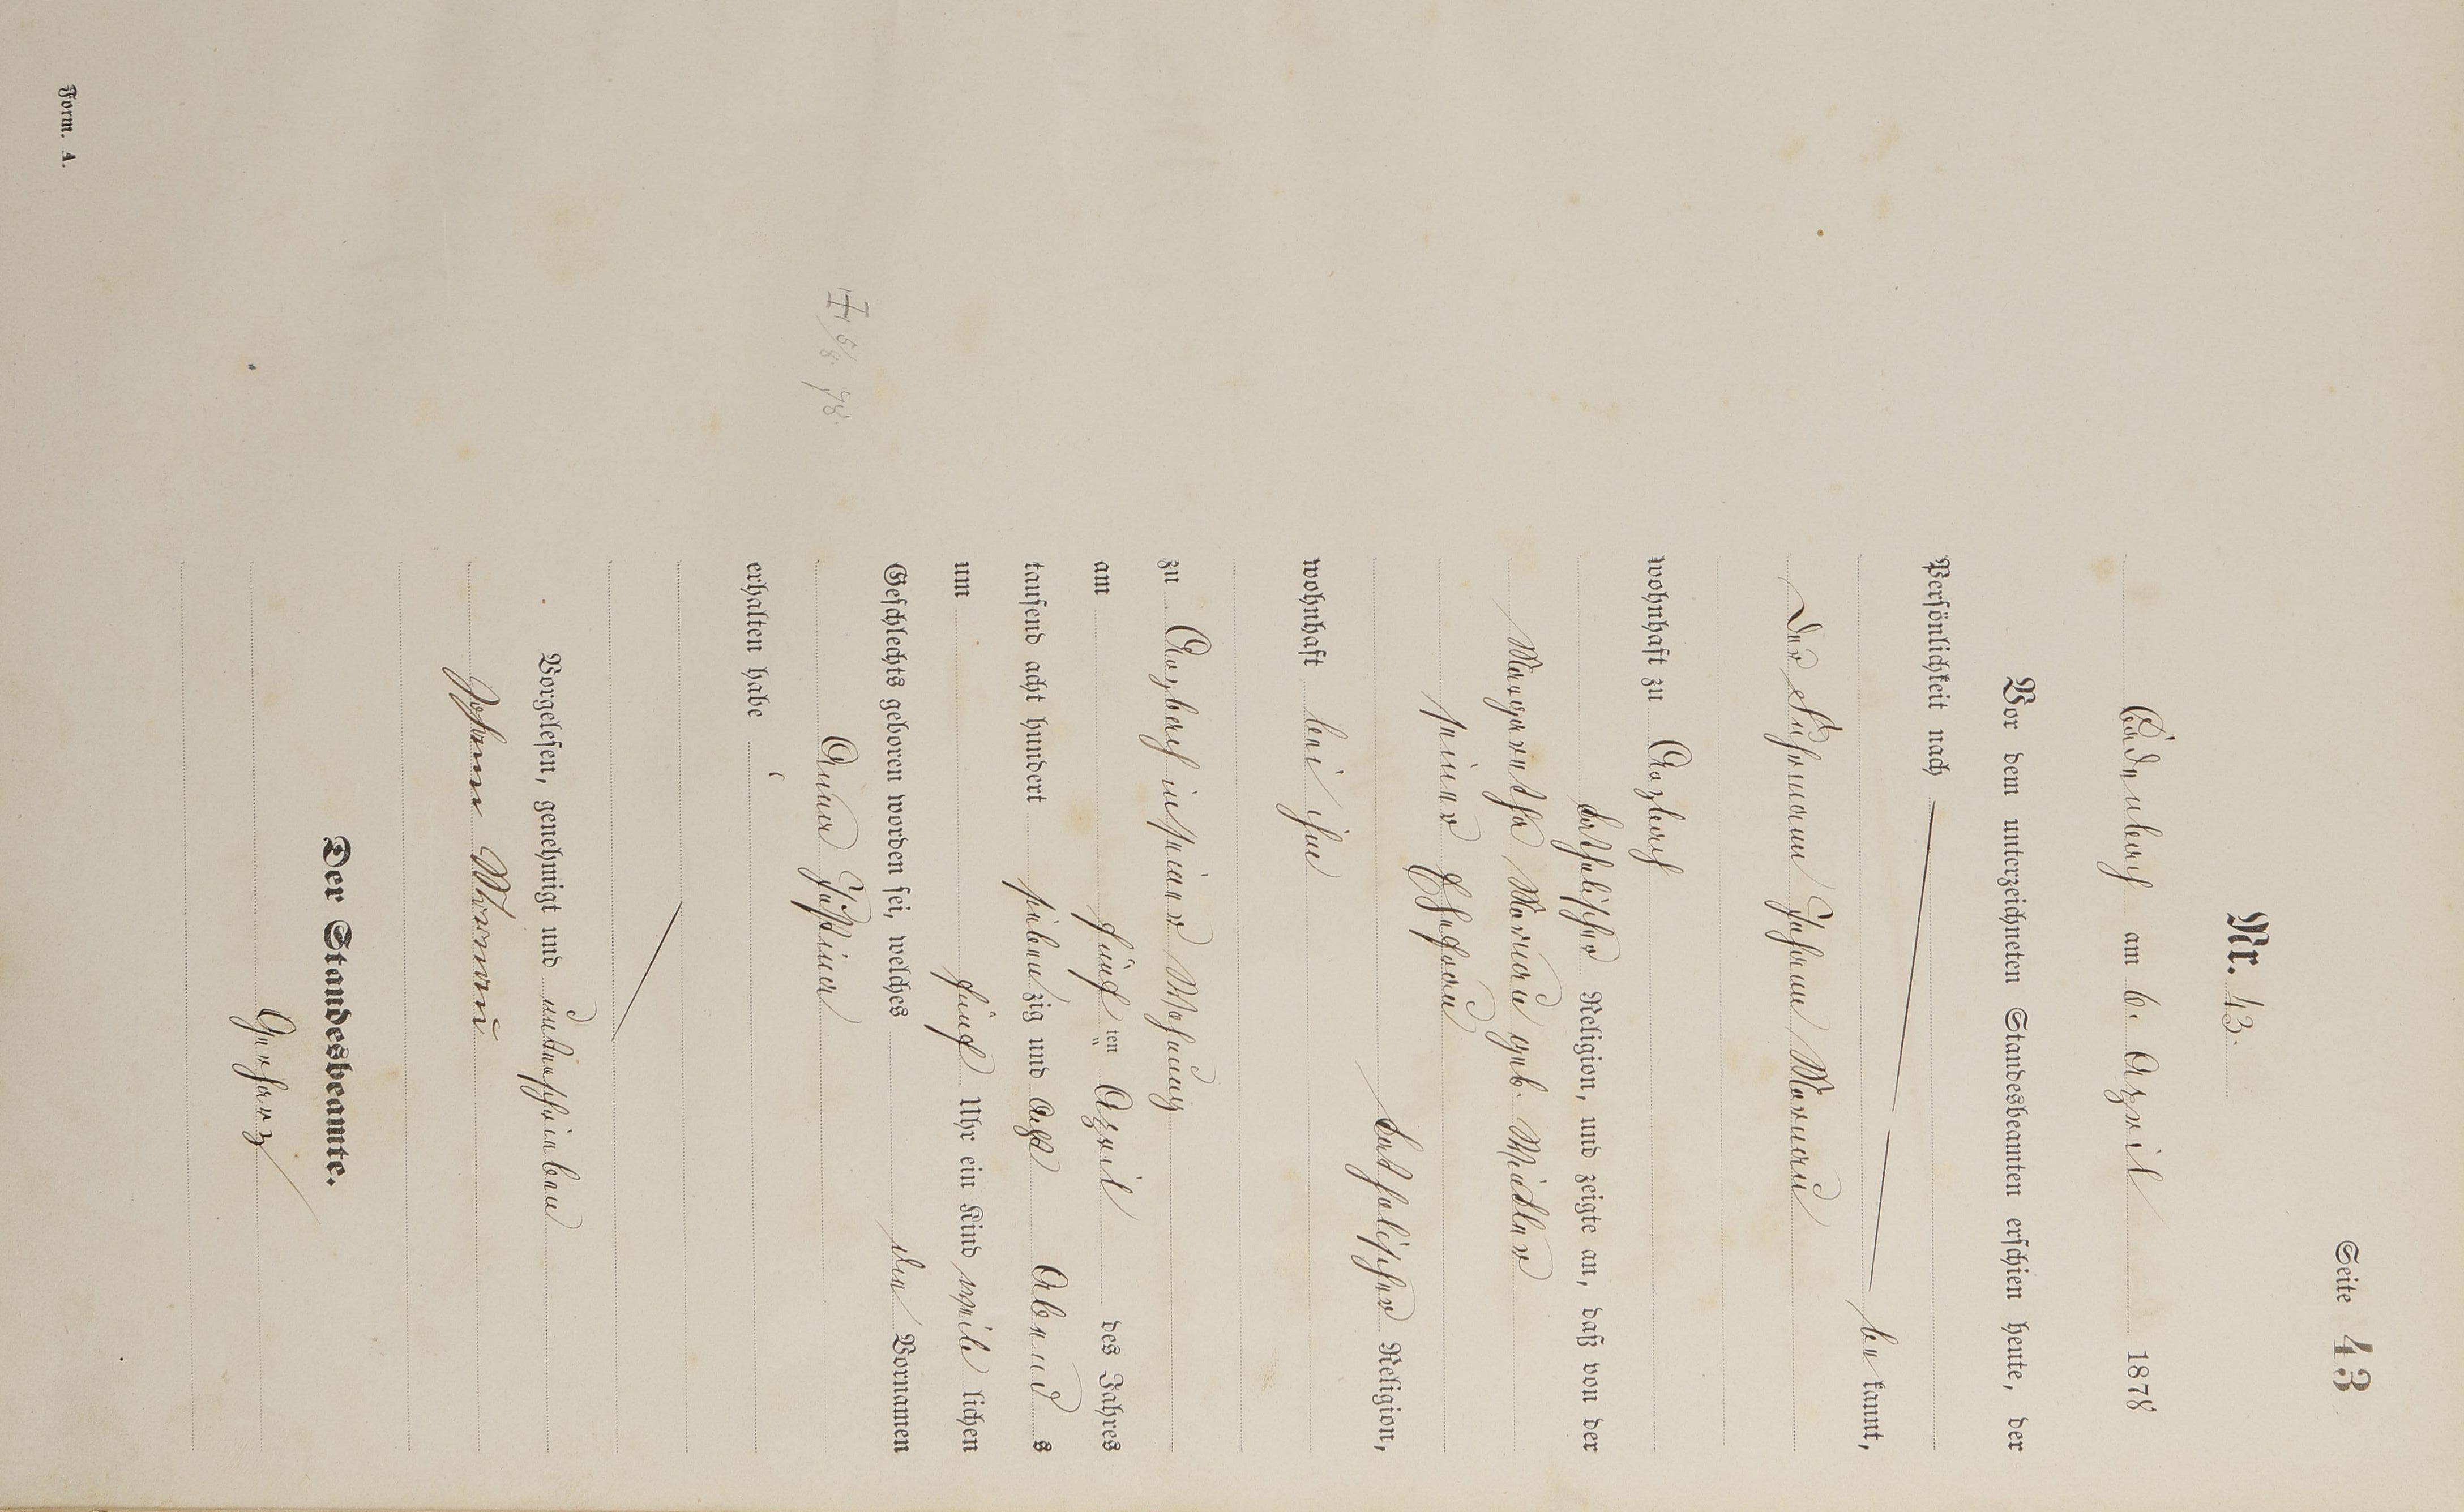 Seite 43
Nr. 43.
am 6. April 1878
Vor dem unterzeichneten Standesbeamten erschien heute, der
Persönlichkeit nach
be kannt,
der Fuhrmann Johann
wohnhaft zu Arzbach
katholischer Religion, und zeigte an, daß von der
Margaretha geb.
seiner Ehefrau
katholischer Religion,
wohnhaft bei ihm
zu Arzbach in seiner Wohnung
am fünf ten April des Jahres
tausend acht hundert sieben zig und acht Abend s
um fünf Uhr ein Kind weib lichen
Geschlechts geboren worden sei, welches den Vornamen
Anna
erhalten habe
Vorgelesen, genehmigt und unterschrieben
Johann
Der Standesbeamte.
Gerharz
Form. A.